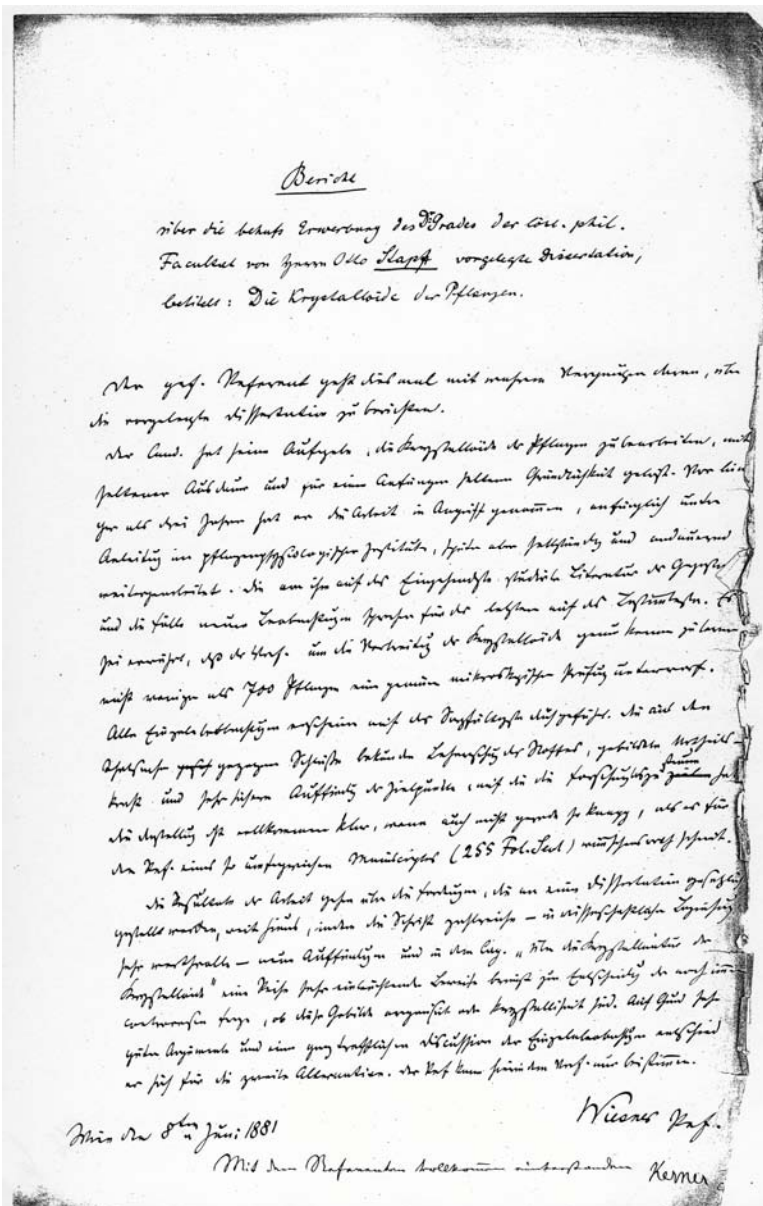 Bericht
über die behufs Erwerbung des Dr Grades der löbl. phil.
Facultät von Herrn Otto Stapf vorgelegte Dissertation,
betitelt: Die Krystalloide der Pflanzen.
Der gef. Referent geht dies mal mit wahrem Vergnügen daran, über
die vorgelegte Dissertation zu berichten.
Der Cand. hat seine Aufgabe, die Krystalloide der Pflanzen zu bearbeiten, mit
seltener Ausdauer und für einen Anfänger seltener Gründlichkeit gelöst. Vor län
ger als drei Jahren hat er die Arbeit in Angriff genommen, anfänglich unter
Anleitung im pflanzenphysiologischen Institute, später aber selbständig und andauernd
weitergearbeitet. Die von ihm auf das Eingehendste studirte Literatur des Gegenstandes
und die Fülle neuer Beobachtungen sprechen für das letztere auf das Bestimmteste. Es
sei erwähnt, daß der Verf. um die Verbreitung der Krystalloide genau kennen zu lernen
nicht weniger als 700 Pflanzen einer genauen mikroskopischen Prüfung unterwarf.
Alle Einzelbeobachtungen erscheinen auf das Sorgfältigste durchgeführt. Die aus den
Thatsachen gezogenen Schlüsse bekunden Beherrschung des Stoffes, gebildete Urtheils-
kraft und sehr sichere Auffindung der Zielpunkte, auf die die Forschung hat
die Darstellung ist vollkommen klar, wenn auch nicht gerade so knapp, als es für
den Ref. eines so umfangreichen Manuscriptes (255 Fol. Seit) wünschenswerth scheint.
Die Resultate der Arbeit gehen über die Forderungen, die an eine Dissertation gesetzlich
gestellt werden, weit hinaus, indem die Schrift zahlreiche – in wissenschaftlicher Beziehung
sehr werthvolle – neue Auffindungen und in dem Cap. „Über die Krystallnatur der
Krystalloide" eine Reihe sehr einleuchtender Beweise bringt zur Entscheidung der noch immer
controversen Frage, ob diese Gebilde organisirt oder krystallisirt sind. Auf Grund sehr
guter Argumente und einer ganz trefflichen Discussion der Einzelbeobachtungen entschied
er sich für die zweite Alternative. Der Ref. kann hierin dem Verf. nur beistimmen.
Wiesner Ref.
Wien den 8ten Juni 1881
Mit dem Referenten vollkommen einverstanden Kerner